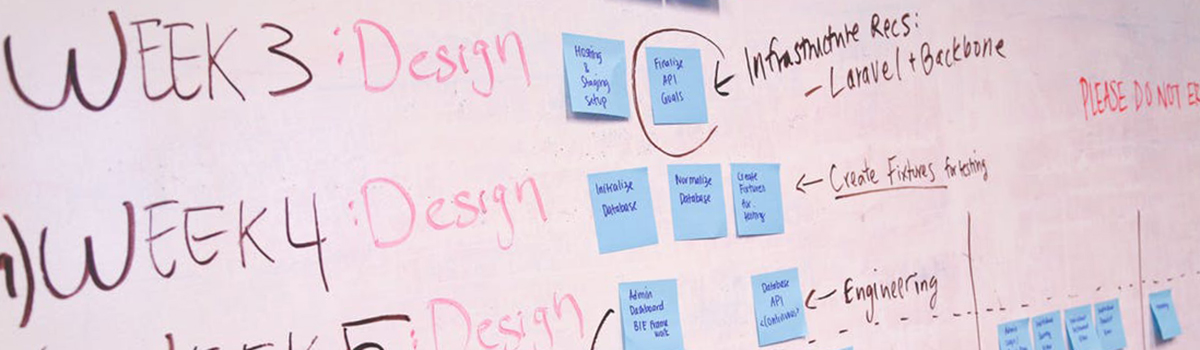 WEEK 3 :Design
Hosting
&
Staging
Setup
Finalize
API
Goals
Infrastructure Recs:
- Laravel + Backbone
PLEASE DO NOT
WEEK 4 :Design
Initialize
Database
Normalize
Database
Create
Fixtures
for
testing
Create Fixtures for testing
WEEK 5 :Design
Admin
Dashboard
Database
API
Engineering